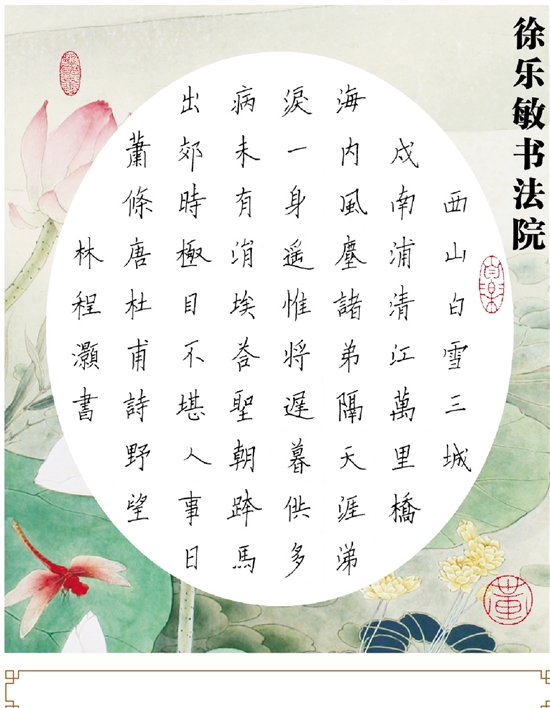 徐乐敏书法院
西山白雪三城
戍南浦清江萬里橋
海内風塵諸弟隔天涯涕
淚一身遥惟將遲暮供多
病未有涓埃荅聖朝跨馬
出郊時極目不堪人事日
蕭條唐杜甫詩野望
林程灝書